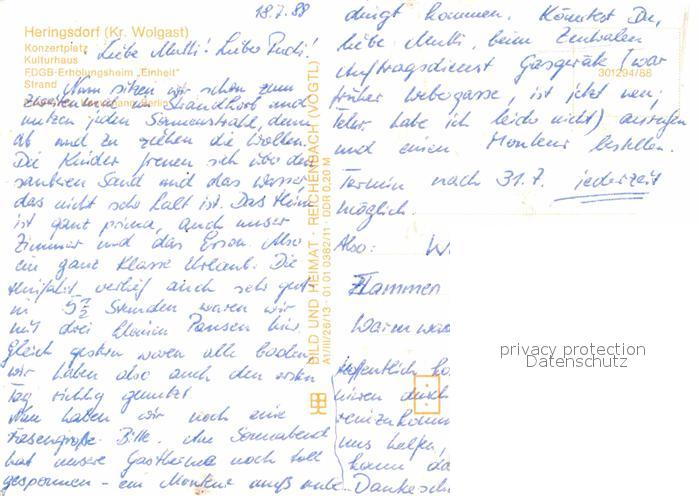 18.7.88
Heringsdorf (Kr. Wolgast)
Konzertplatz
Kulturhaus
FDGB-Erholungsheim "Einheit"
Strand
Liebe Mutti! Lieber Puchi!
Nun sitzen wir schon zum
zweiten mal im Strandkorb und
nutzen jeden Sonnenstrahl, denn
ab und zu ziehen die Wolken.
Die Kinder freuen sich über den
sauberen Sand und das Wasser,
das nicht sehr kalt ist. Das Heim
ist ganz prima, auch unser
Zimmer und das Essen. Also
ein ganz Klasse Urlaub. Die
Hinfahrt verlief auch sehr gut
in 5 1/2 Stunden waren wir
mit drei kleinen Pausen hier.
Gleich gestern waren alle baden
wir haben also auch den ersten
Tag richtig genutzt.
Nun haben wir noch eine
riesengroße Bitte. Am Sonnabend
hat unsere Gastherme noch toll
gesponnen - ein Monteur muß unbe-
BILD UND HEIMAT · REICHENBACH (VOGTL)
A1/III/26/13 · 01 01 0382/11 · DDR 0,20 M
dingt kommen. Könntest Du,
liebe Mutti, beim Zentralen
Auftragsdienst Gasgeräte (war
301294/88
früher Webergasse, ist jetzt neu;
Telnr. habe ich leider nicht) anrufen
und einen Monteur bestellen.
Termin nach 31.7. jederzeit
möglich.
Also: W
Flammen
Warm
Hoffentlich
durch
uns helfen,
kann da
Dankesch
privacy protection
Datenschutz